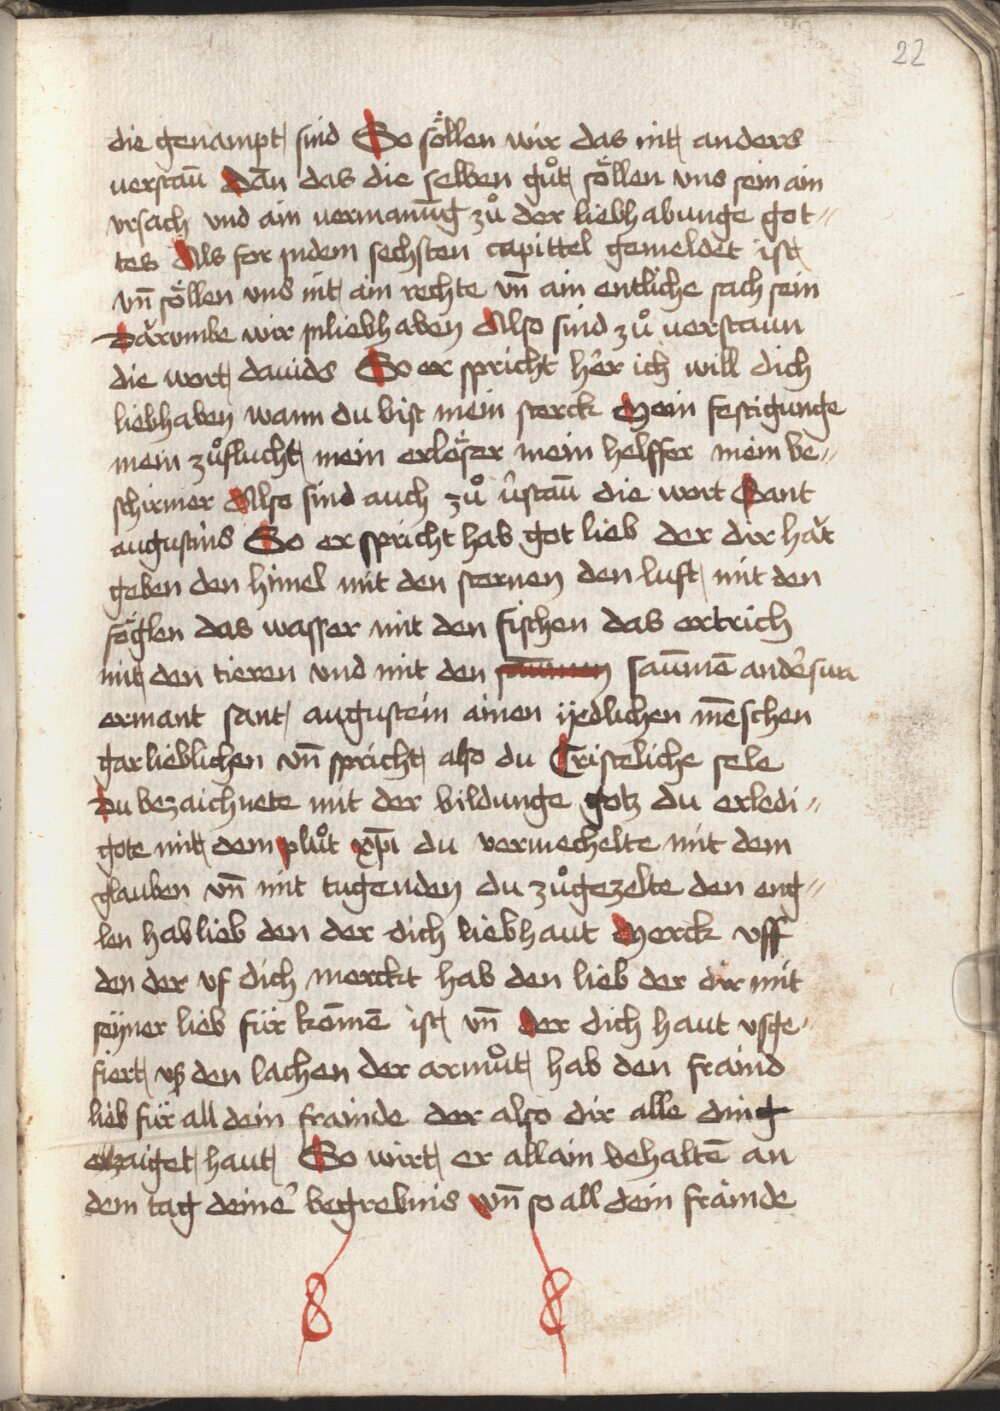 22
die genampt sind So söllen wir das nit anders
uerstaū Dān das die selben gůt söllen vns sein ain
vrsach vnd ain uermanūg zů der liebhabunge got-
tes Als for jndem sechsten capittel gemeldet ist
vn̄ söllen vns nit ain rechte vn̄ ain entliche sach sein
Darumbe wir jnliebhaben Also sind zů uerstaun
die wort dauids So er spricht her ich will dich
liebhaben wann du bist mein sterck Mein festigunge
mein zůflucht mein erlöszer mein helffer mein be-
schirmer Also sind auch zů v̂staū die wort Sant
augustins So er spricht hab got lieb der dir hăt
geben den himel mit den sternen den luft mit den
föglen das wasser mit den fischen das ertrich
mit den tieren vnd mit den saūmē
ermant sant augustein ainen ÿedlichen mēschen
gar lieblichen vn̄ spricht also du Cristeliche sele
Du bezaichnete mit der bildunge gotz du erledi-
gote mit dem plůt xp̄i du vermechelte mit dem
glauben vn̄ mit tugenden du zůgezelte den eng-
len hab lieb den der dich liebhaut Merck vff
den der vf dich merckt hab den lieb der dir mit
seÿner lieb für kōmē ist vn̄ Der dich haut vsge-
fiert vß den lachen der armůt hab den fraind
lieb für all dein frainde der also dir alle ding
erzaiget haut So wirt er allain behaltē an
dem tag deine᾽ begrebnis vn̄ so all dein frainde